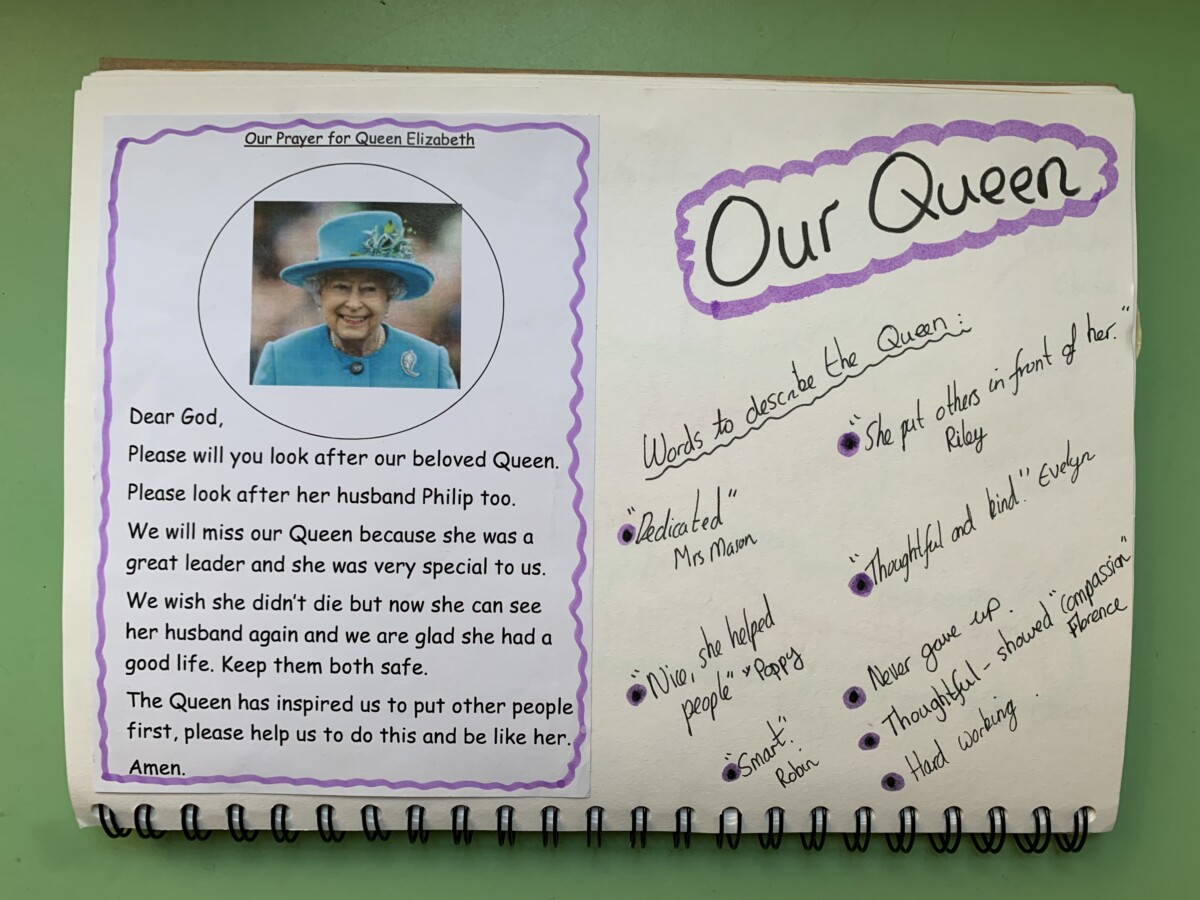 Our Prayer for Queen Elizabeth
Dear God,
Please will you look after our beloved Queen.
Please look after her husband Philip too.
We will miss our Queen because she was a
great leader and she was very special to us.
We wish she didn't die but now she can see
her husband again and we are glad she had a
good life. Keep them both safe.
The Queen has inspired us to put other people
first, please help us to do this and be like her.
Amen.
Our Queen
Words to describe the Queen:
"She put others in front of her."
Riley
"Dedicated"
Mrs Mason
"Thoughtful and kind." Evelyn
"Nice, she helped
people" Poppy
"Smart."
Robin
Never gave up.
Thoughtful - showed "compassion"
Florence
Hard working.